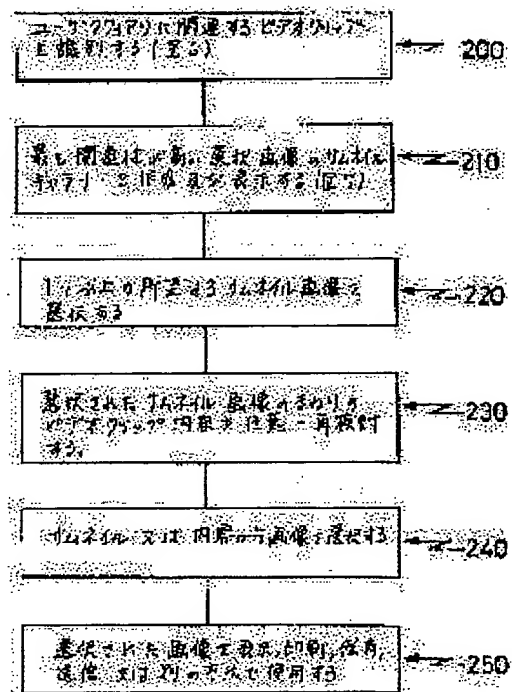 ユーザクエリに関連するビデオクリップ
を識別する(
200
最も関連性が高い選択画像のサムネイル
ギャラリーを作成及び表示する(
210
1つ以上の所望するサムネイル画像を
選択する
220
選択されたサムネイル画像のまわりの
ビデオクリップ内容を任意に再検討
する。
230
サムネイル又は内容から画像を選択する
240
選択された画像を表示、印刷、保存、
送信、又は別の方法で使用する
250